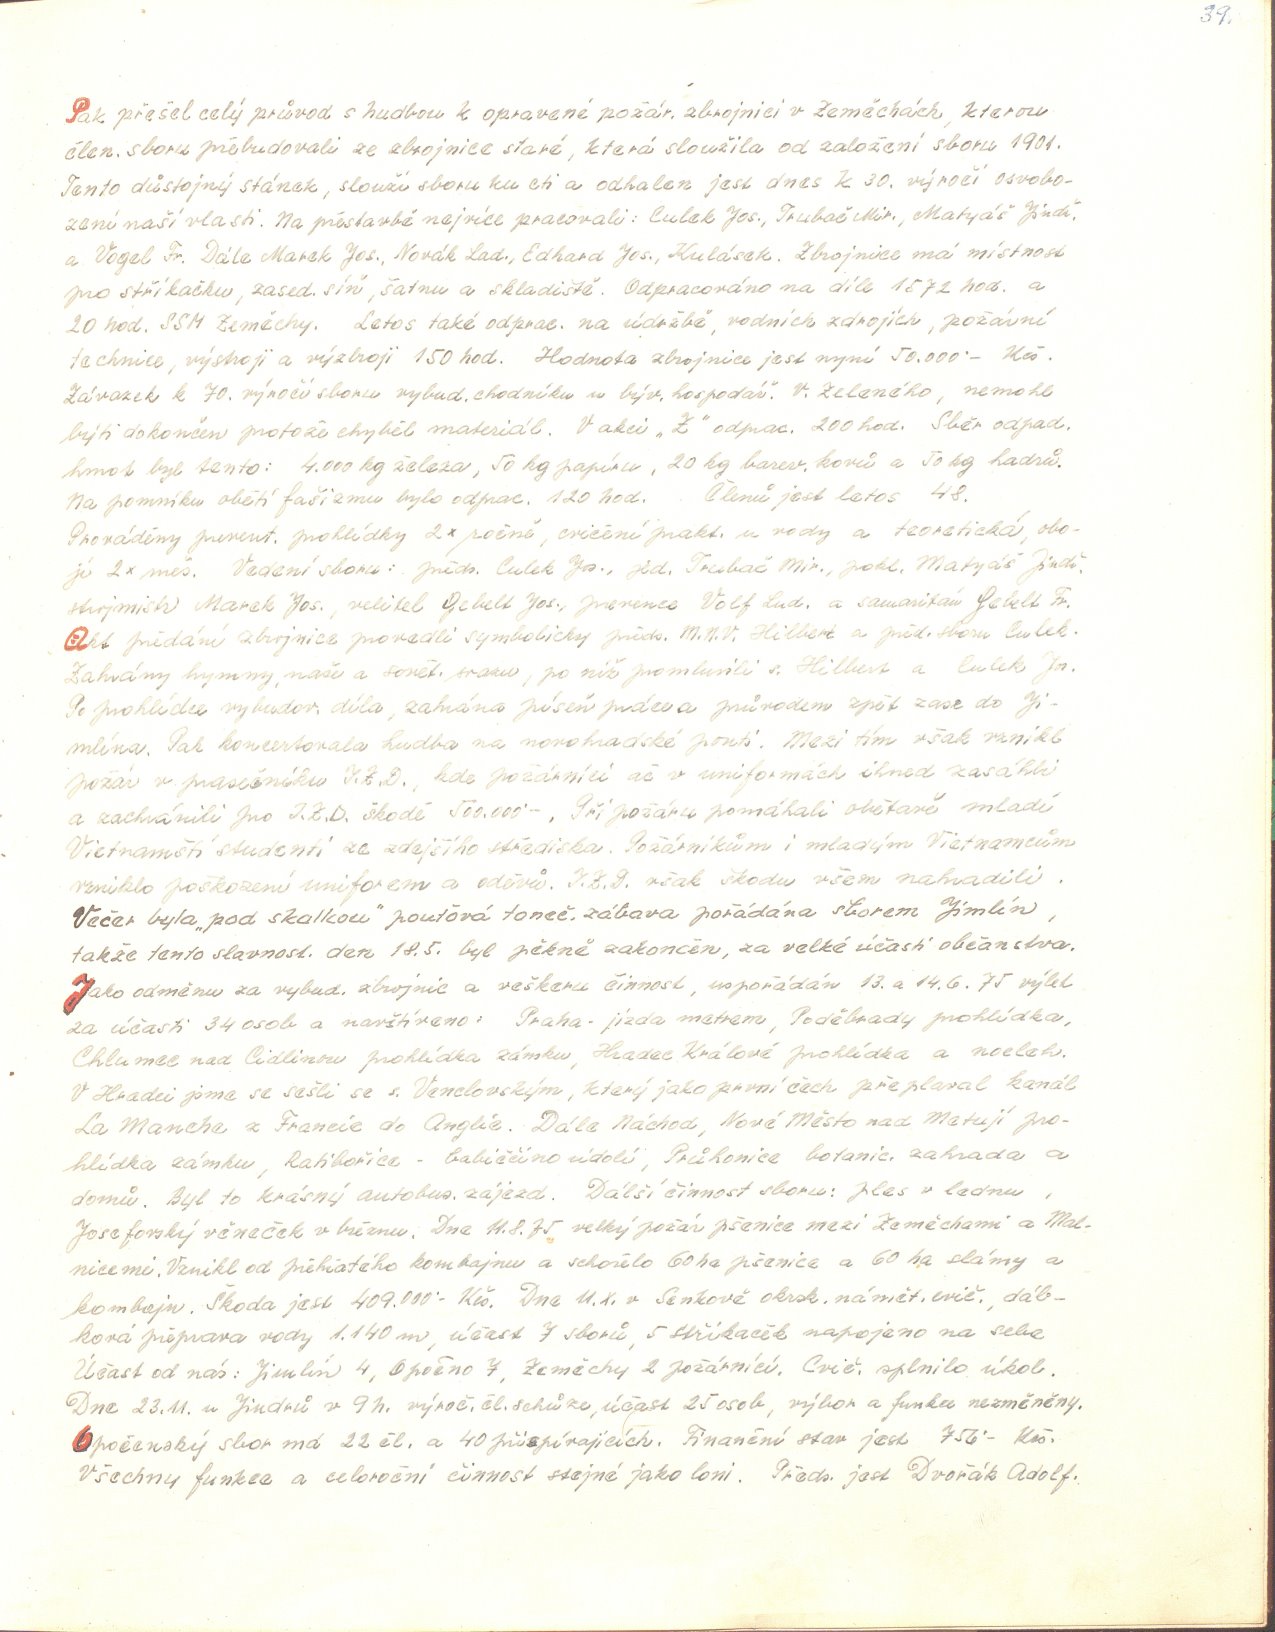 39.
Pak přešel celý průvod s hudbou k opravené požár. zbrojnici v Zeměchách, kterou
člen. sboru přebudovali ze zbrojnice staré, která sloužila od založení sboru 1901.
Tento důstojný stánek, slouží sboru ku cti a odhalen jest dnes k 30. výročí osvobo-
zení naší vlasti. Na přestavbě nejvíce pracovali: Culek Jos., Trubač Mir., Matyáš Jindř.
a Vogel Fr. Dále Marek Jos., Novák Lad., Edhard Jos., Kulásek. Zbrojnice má místnost
pro stříkačku, zased. síň, šatnu a skladiště. Odpracováno na díle 1572 hod. a
20 hod. SSM Zeměchy. Letos také odprac. na údržbě, vodních zdrojích, požární
technice, výstroji a výzbroji 150 hod. Hodnota zbrojnice jest nyní 50.000·- Kčs.
Závazek k 70. výročí sboru vybud. chodníku u býv. hospodář. V. Zeleného, nemohl
býti dokončen protože chyběl materiál. V akci „Z" odprac. 200 hod. Sběr odpad.
hmot byl tento: 4.000 kg železa, 50 kg papíru, 20 kg barev. kovů a 50 kg hadrů.
Na pomníku obětí fašizmu bylo odprac. 120 hod. Členů jest letos 48.
Prováděny prevent. prohlídky 2x ročně, cvičení prakt. u vody a teoretická, obo-
jí 2x měs. Vedení sboru: předs. Culek Jos., jed. Trubač Mir., pokl. Matyáš Jindř.
strojmistr Marek Jos., velitel Gebelt Jos., prevence Volf Lud. a samaritán Gebelt Fr.
Akt předání zbrojnice provedli symbolicky předs. M.N.V. Hilbert a před. sboru Culek.
Zahrány hymny, naše a sovět. svazu, po níž promluvili s. Hilbert a Culek Jos.
Po prohlídce vybudov. díla, zahrána píseň práce a průvodem zpět zase do Ji-
mlína. Pak koncertovala hudba na novohradské pouti. Mezi tím však vznikl
požár v prasečníku J.Z.D., kde požárníci ač v uniformách ihned zasáhli
a zachránili pro J.Z.D. škodě 500.000·-. Při požáru pomáhali obětavě mladí
Vietnamští studenti ze zdejšího střediska. Požárníkům i mladým Vietnamcům
vzniklo poškození uniforem a oděvů. J.Z.D. však škodu všem nahradili.
Večer byla „pod skalkou" pouťová taneč. zábava pořádána sborem Jimlín,
takže tento slavnost. den 18.5. byl pěkně zakončen, za velké účasti občanstva.
Jako odměnu za vybud. zbrojnic a veškerou činnost, uspořádán 13. a 14.6.75 výlet
za účasti 34 osob a navštíveno: Praha - jízda metrem, Poděbrady prohlídka,
Chlumec nad Cidlinou prohlídka zámku, Hradec Králové prohlídka a nocleh.
V Hradci jsme se sešli se s. Venclovským, který jako první čech přeplaval kanál
La Manche z Francie do Anglie. Dále Náchod, Nové Město nad Metují pro-
hlídka zámku, Ratibořice - babiččino údolí, Průhonice botanic. zahrada a
domů. Byl to krásný autobus. zájezd. Další činnost sboru: ples v lednu,
Josefovský věneček v březnu. Dne 11.8.75 velký požár pšenice mezi Zeměchami a Mal-
nicemi. Vznikl od přehřátého kombajnu a schořelo 60 ha pšenice a 60 ha slámy a
kombajn. Škoda jest 409.000·- Kčs. Dne 11.X. v Senkově okrsk. námět. cvič., dál-
ková přeprava vody 1.140 m, účast 7 sborů, 5 stříkaček napojeno na sebe
Účast od nás: Jimlín 4, Opočno 7, Zeměchy 2 požárníci. Cvič. splnilo úkol.
Dne 23.11. u Jindrů v 9 h. výroč. čl. schůze, účast 25 osob, výbor a funkce nezměněny.
Opočenský sbor má 22 čl. a 40 přispívajících. Finanční stav jest 756·- Kčs.
Všechny funkce a celoroční činnost stejné jako loni. Předs. jest Dvořák Adolf.